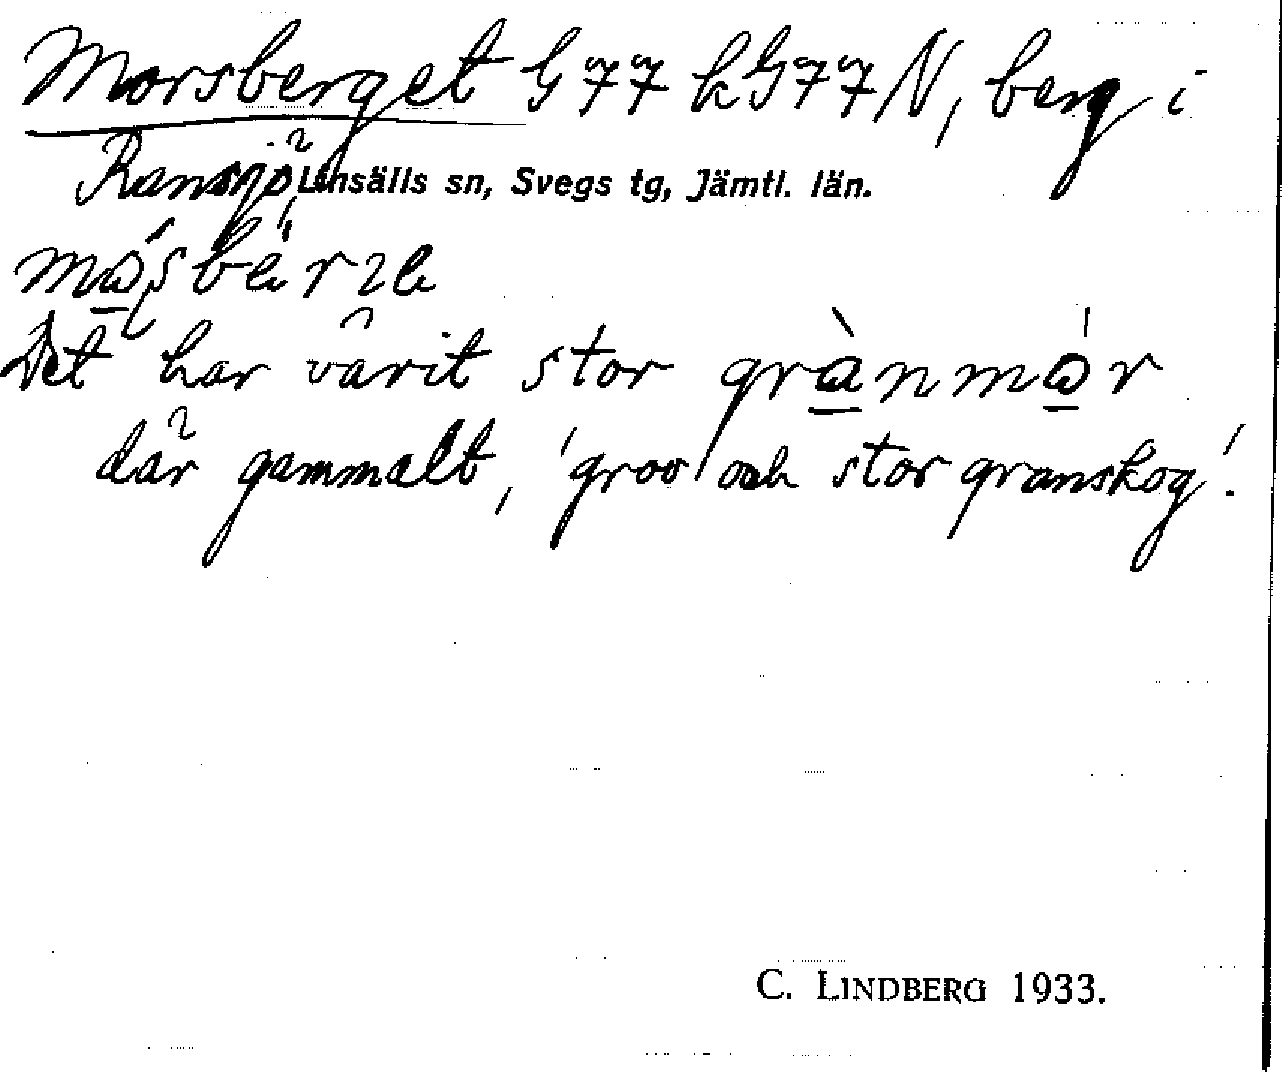 Morsberget G77 kG77N, berg i
Ransjö, Linsälls sn, Svegs tg, Jämtl. län.
Det har värit stor grànmór
där gammalt, 'grov och stor granskog'.
C. LINDBERG 1933.